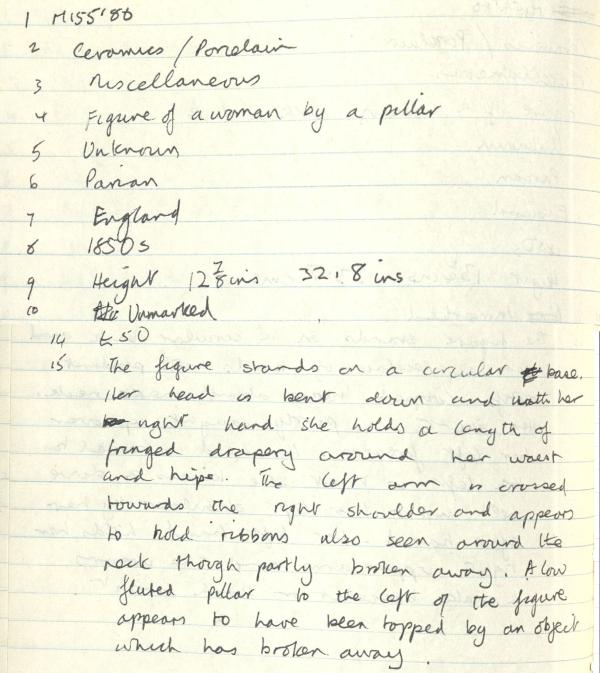 1 MISS'86
2 Ceramics / Porcelain
3 Miscellaneous
4 Figure of a woman by a pillar
5 Unknown
6 Parian
7 England
8 1850s
9 Height 12 7/8 ins 32.8 ins
10 Unmarked
14 £50
15 The figure stands on a circular base.
Her head is bent down and with her
right hand she holds a length of
fringed drapery around her waist
and hips. The left arm is crossed
towards the right shoulder and appears
to hold ribbons also seen around the
neck though partly broken away. A low
fluted pillar to the left of the figure
appears to have been topped by an object
which has broken away.